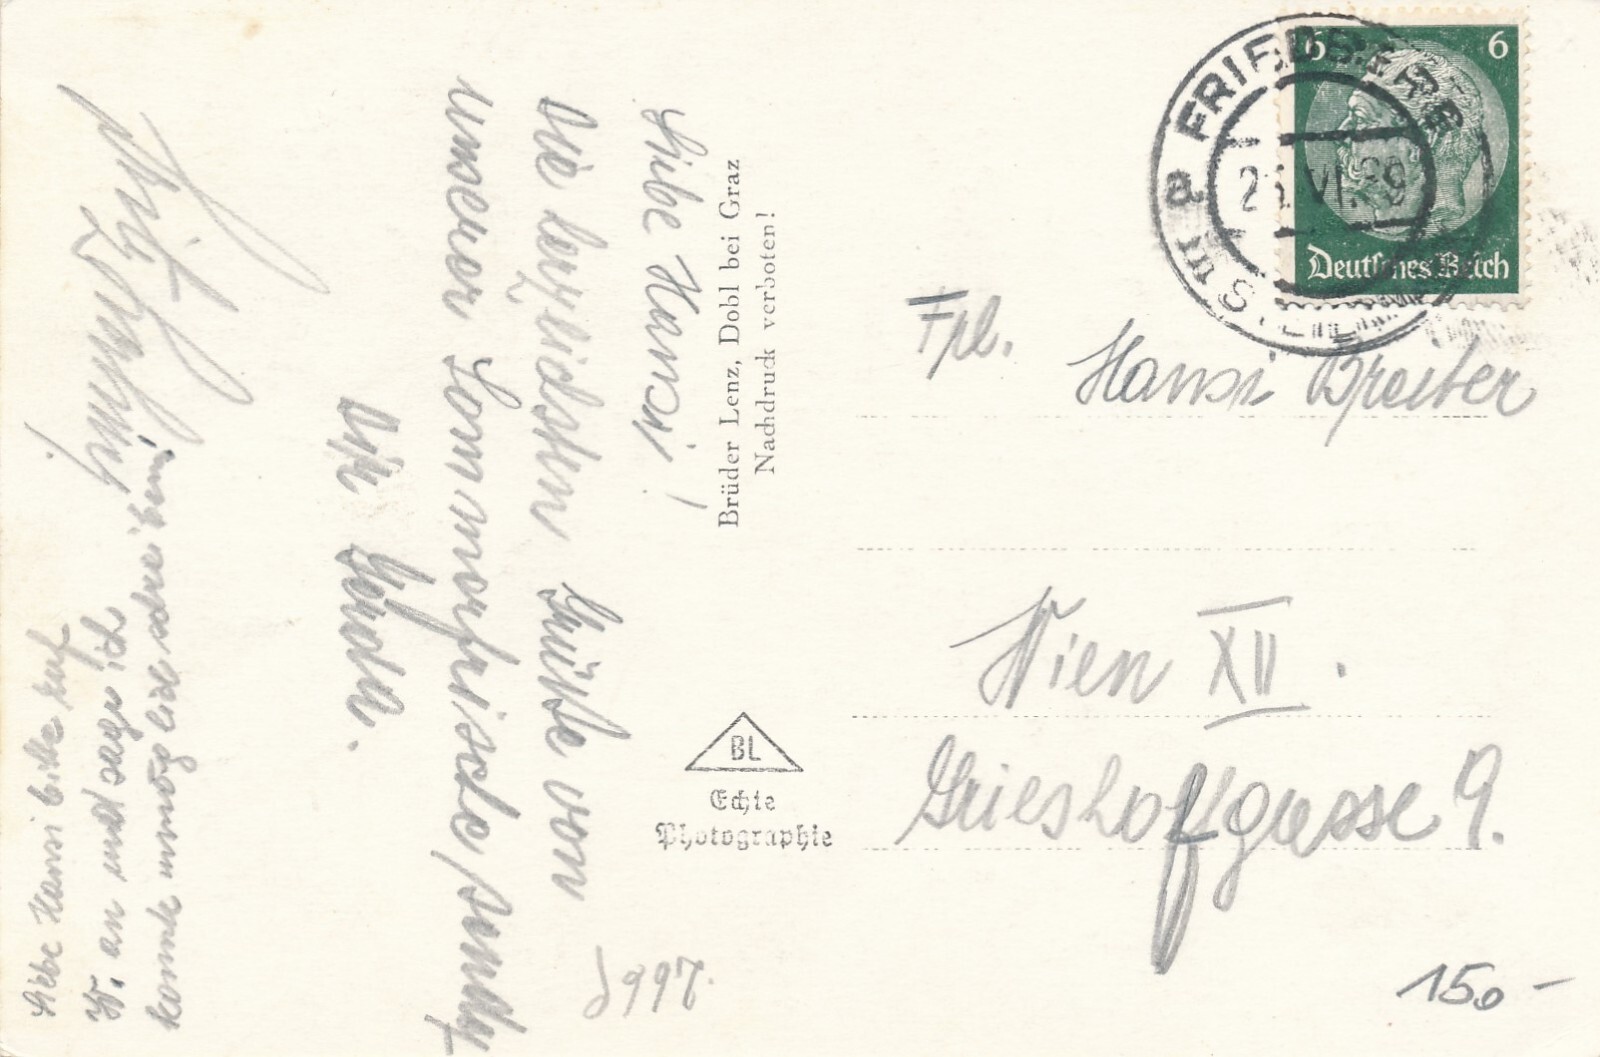 Liebe Hansi!
Die herzlichsten Grüße von
unserer Sommerfrische sendet
Dir
Liebe Hansi bitte ruf
W. an und sage ich
komme unmöglich schreiben!
Brüder Lenz, Dobl bei Graz
Nachdruck verboten!
BL
Echte
Photographie
6 6
Deutsches Reich
FRIEDBERG
VI.39
Frl. Hansi Breiter
Wien XII.
Grieshofgasse 9.
150-